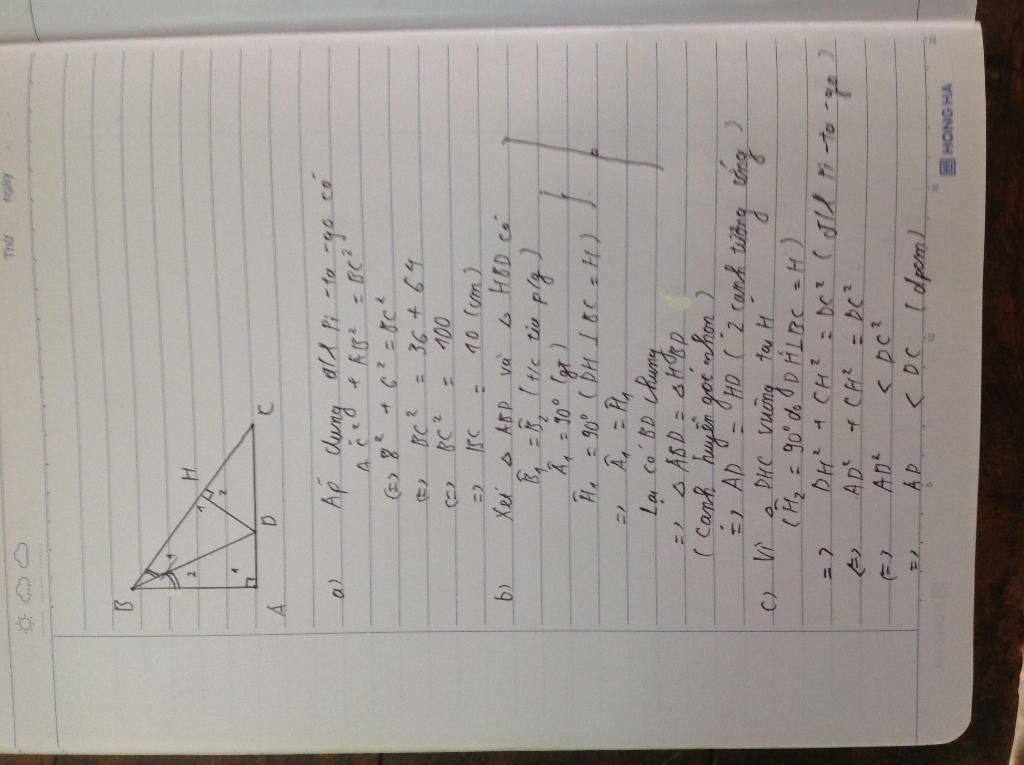 Thứ
ngày
B
H
1
2
1
2
1
A
D
C
a) Áp dụng đ/l Pi-ta-go có
AC² + AB² = BC²
(=) 8² + 6² = BC²
(=) BC² = 36 + 64
(=) BC² = 100
=> BC = 10 (cm)
b) Xét △ ABD và △ HBD có
B̂₁ = B̂₂ (t/c tia p/g)
Â₁ = 90° (gt)
Ĥ₁ = 90° (DH ⊥ BC = H)
=> Â₁ = Ĥ₁
Lại có BD chung
=> △ ABD = △ HBD
(cạnh huyền góc nhọn)
=> AD = HD (2 cạnh tương ứng)
c) Vì △ DHC vuông tại H
(Ĥ₂ = 90° do DH⊥BC = H)
=> DH² + CH² = DC² (đ/l Pi-ta-go)
(=) AD² + CH² = DC²
(=) AD² < DC²
=> AD < DC (đpcm)
5
10
15
20
HONG HA